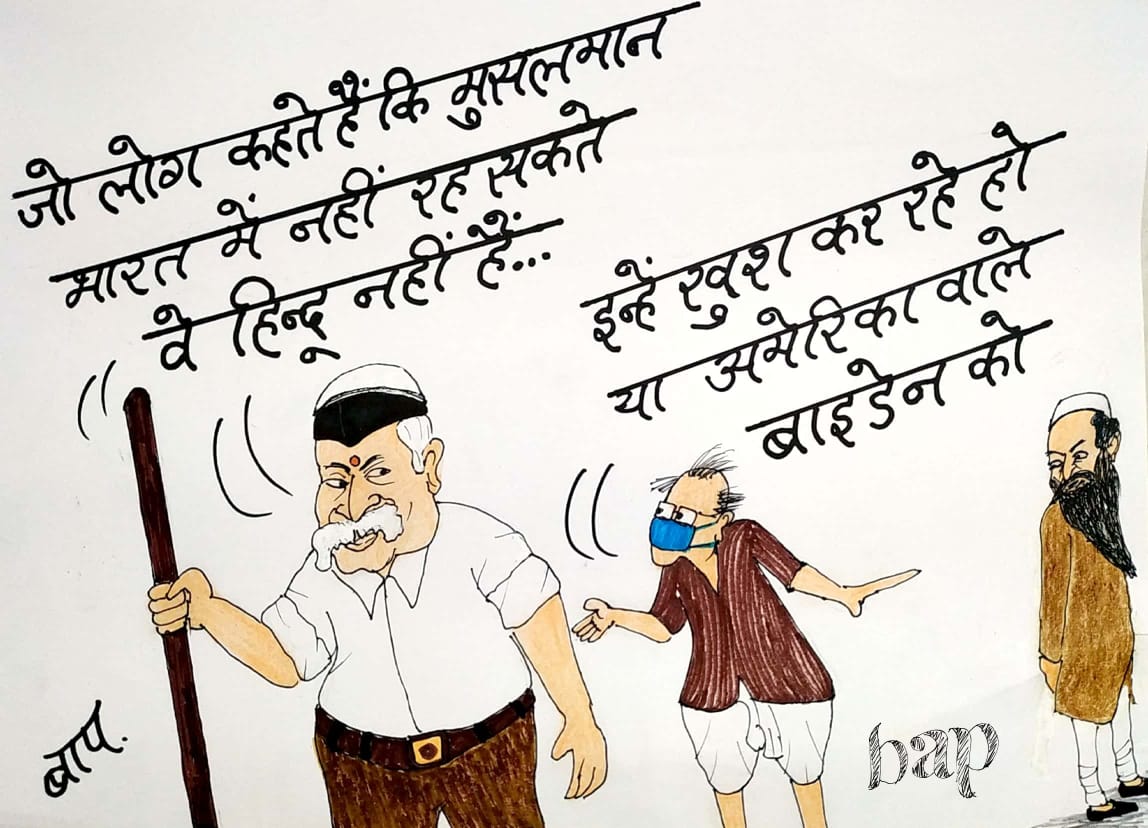 जो लोग कहते हैं कि मुसलमान
भारत में नहीं रह सकते
वे हिन्दू नहीं हैं...
इन्हें खुश कर रहे हो
या अमेरिका वाले
बाइडेन को
बाप.
bap